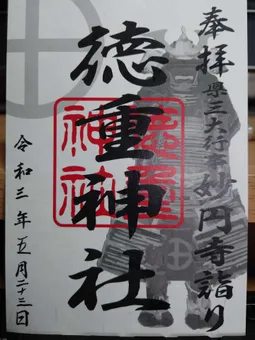 奉拝
県三大行事妙円寺詣り
徳重神社
徳重
神社
令和三年五月二十三日